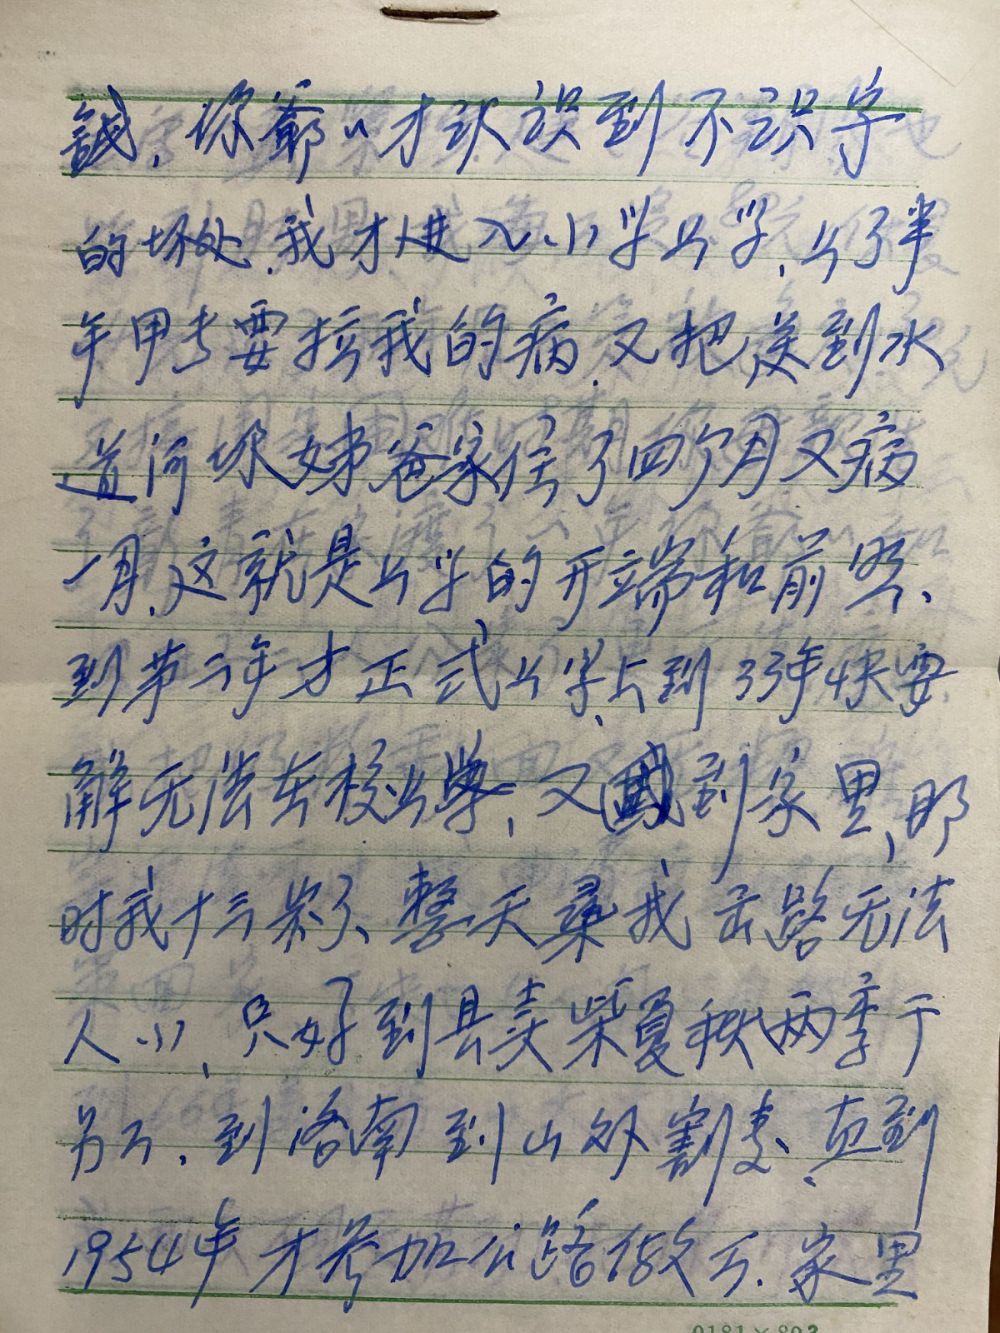 你爷〃才认误到不识字
的坏处、我才进入小学上学、上了半
年甲长要拉我的病、又把送到水
道河坏姊爸家住了四个月又病
一月、这就是上学的开端和前
到第二年才正式上学、上到33年快要
解无法在校上学、又到家里、那
时我十三岁了、整天寻我出路无法
人小、只好到县卖柴夏秋两季于
另工、到洛南到山外割麦、直到
1954年才参加公路做工、家里
0181×803